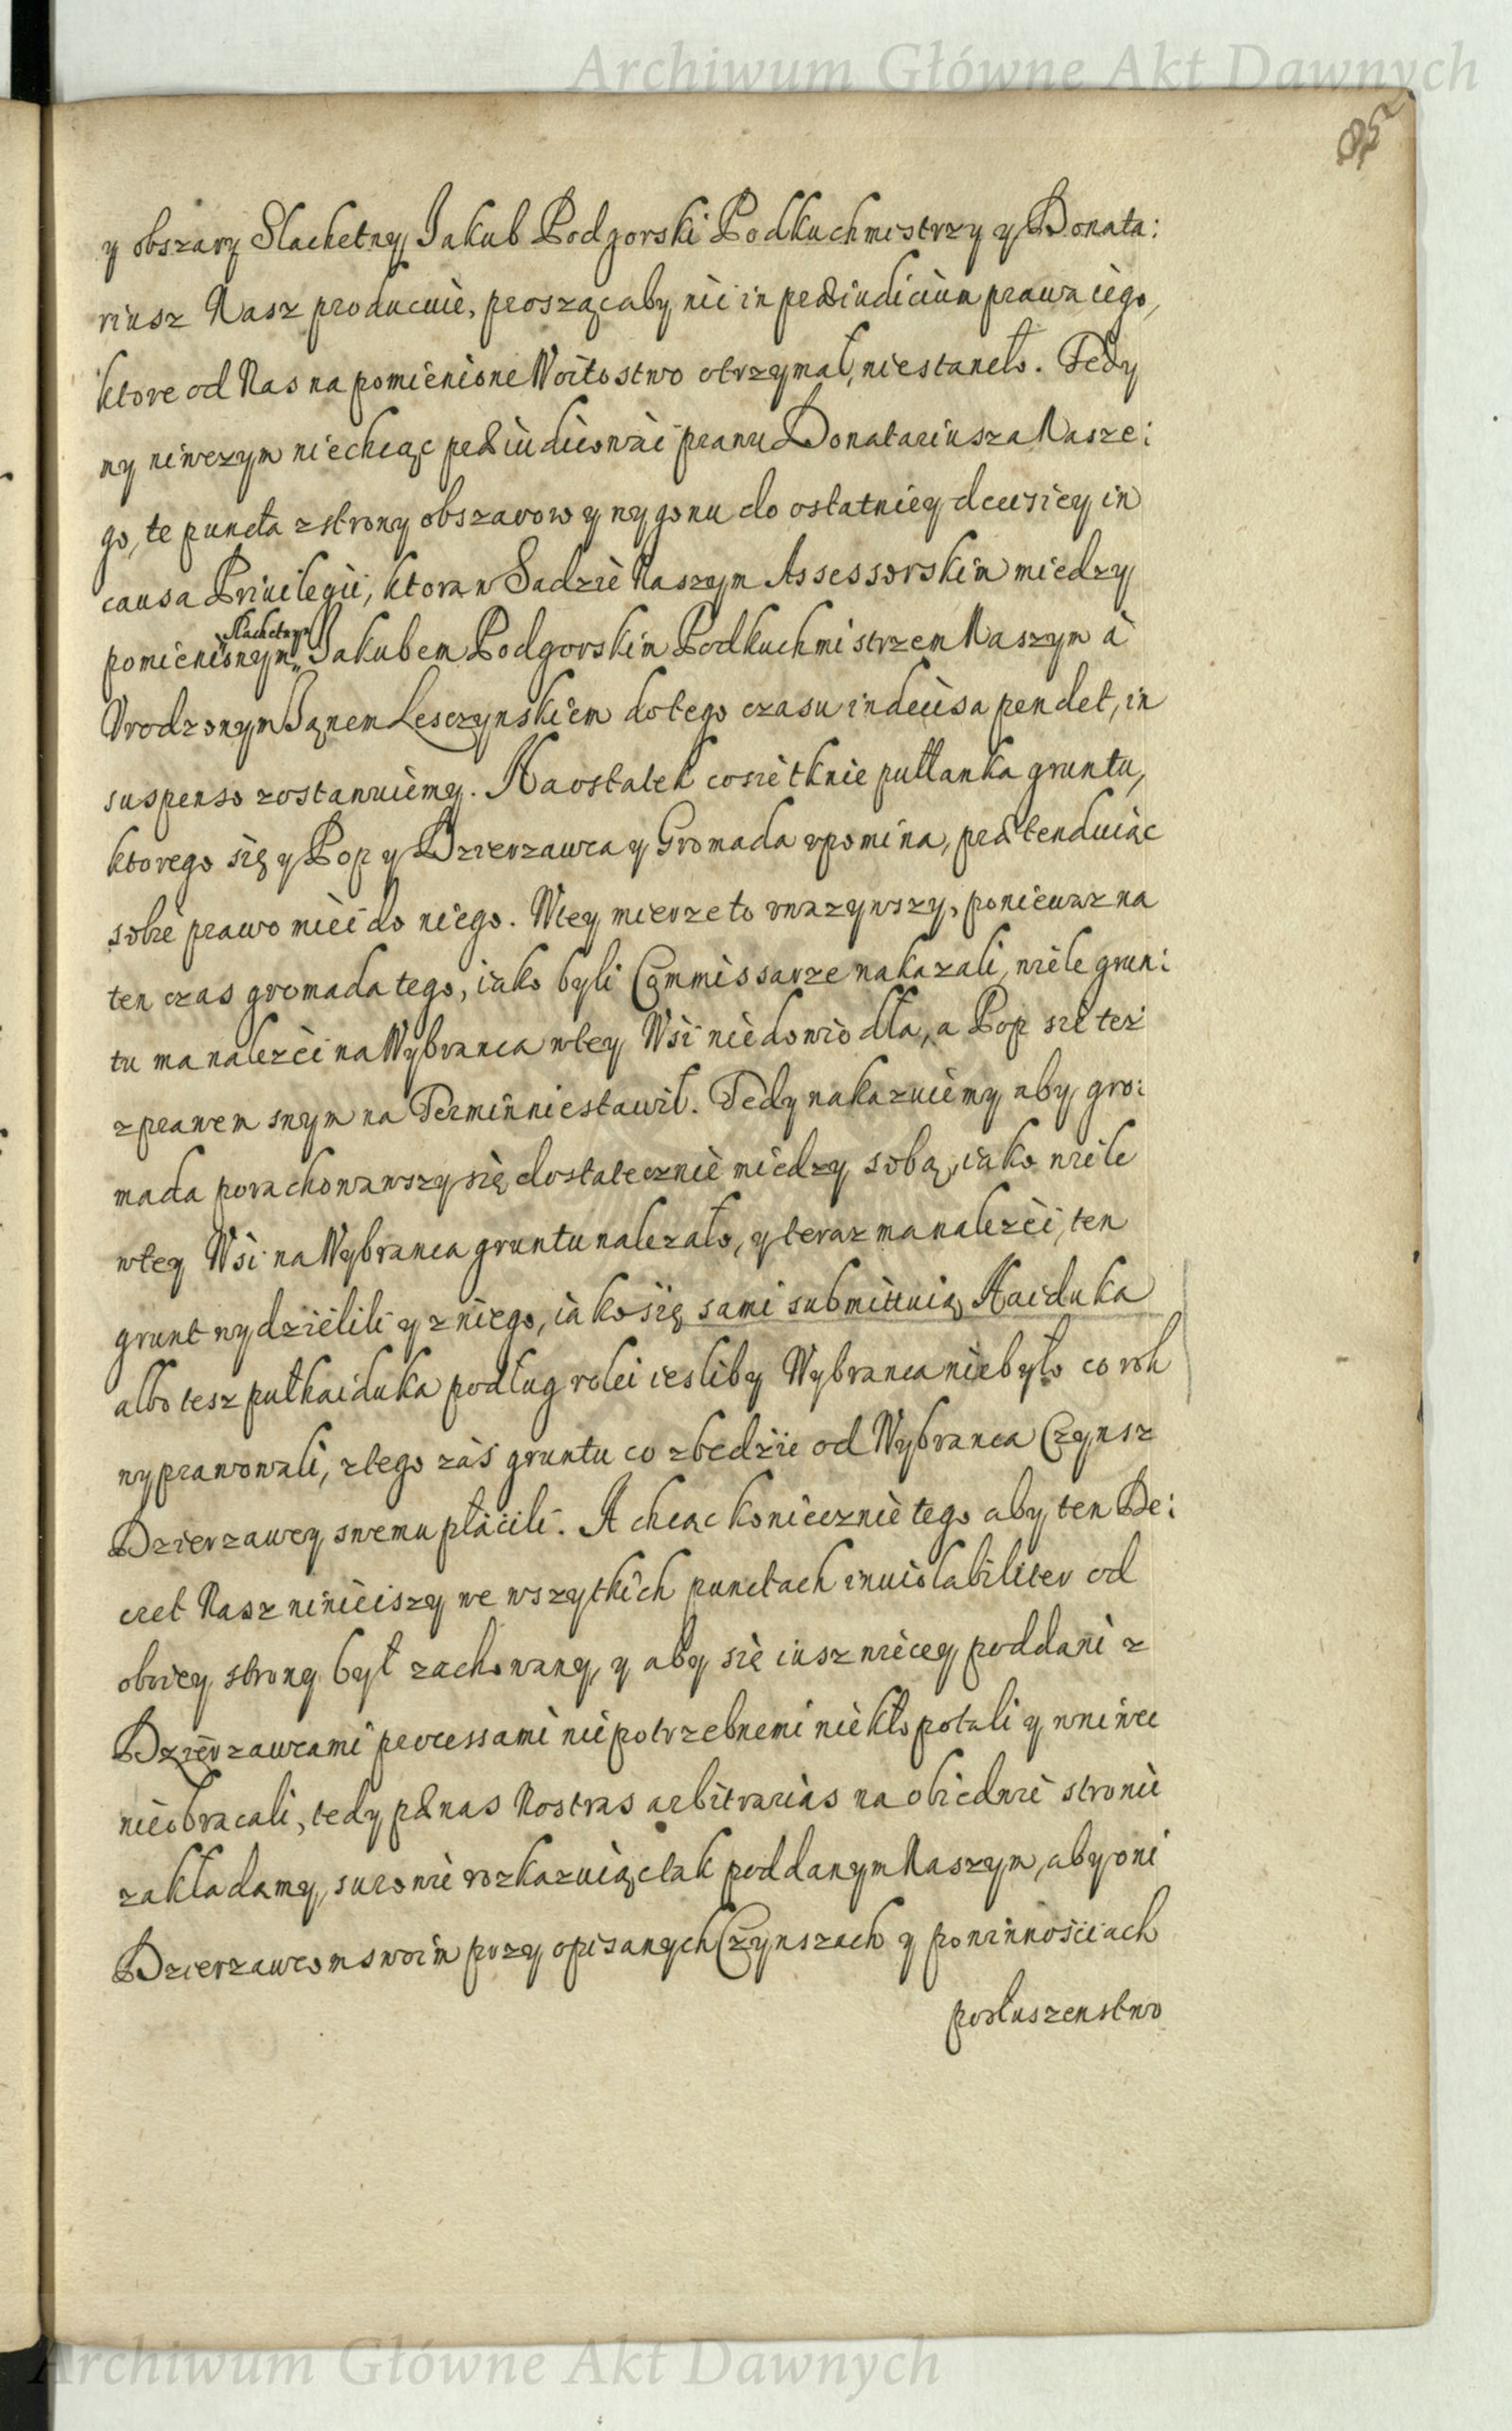 Archiwum Główne Akt Dawnych
852
y obszary Slachetny Iakub Podgorski Podkuchmistrzy y Donata:
riusz Nasz producuie, prosząc aby nic in præiudicium prawa iego,
ktore od Nas na pomienione Woitostwo otrzymał, niestaneło. Tedy
my niwczym niechcąc præiudicować prawu Donatariusza Nasze:
go, te puncta z strony obszarow y wygonu do ostatniey decisiey in
causa Priuilegii, ktora w Sadzie Naszym Assessorskim miedzy
pomienionym Slachetnym Iakubem Podgorskim Podkuchmistrzem Naszym à
Vrodzonym Ianem Lesczynskiem do tego czasu indecisa pendet, in
suspenso zostawuiemy. Na ostatek co sie tknie pułłanka gruntu,
ktorego się y Pop y Dzierzawca y Gromada vpomina, prætenduiąc
sobie prawo mieć do niego. W tey mierze to vwazywszy, poniewaz na
ten czas gromada tego, iako byli Commissarze nakazali, wiele grun:
tu ma nalezeć na Wybranca w tey Wsi niedowiodła, a Pop sie też
z prawem swym na Termin niestawił. Tedy nakazuiemy aby gro:
mada porachowawszy się dostatecznie miedzy sobą, iako wiele
w tey Wsi na Wybranca gruntu nalezało, y teraz ma nalezeć, ten
grunt wydzielili y z niego, iako się sami submittuią, Haiduka
albo tesz pułhaiduka podług rolei iesliby Wybranca niebyło co rok
wyprawowali, z tego zaś gruntu co zbedzie od Wybranca Czynsz
Dzierzawcy swemu płacili. A chcąc koniecznie tego aby ten De:
cret Nasz ninieiszy we wszytkich punctach inuiolabiliter od
obiey strony był zachowany, y aby się iusz wiecey poddani z
Dzierzawcami processami niepotrzebnemi niekłopotali y wniwec
nieobracali, tedy pœnas Nostras arbitrarias na obiedwie stronie
zakładamy, surowie rozkazuiąc tak poddanym Naszym, aby oni
Dzierzawcom swoim przy opisanych Czynszach y powinnościach
posłuszenstwo
Archiwum Główne Akt Dawnych